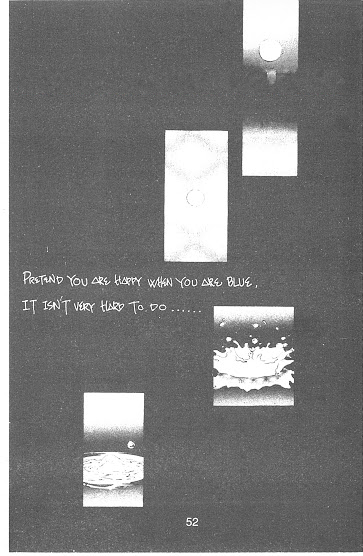 PRETEND YOU ARE HAPPY WHEN YOU ARE BLUE,
IT ISN'T VERY HARD TO DO ......
52